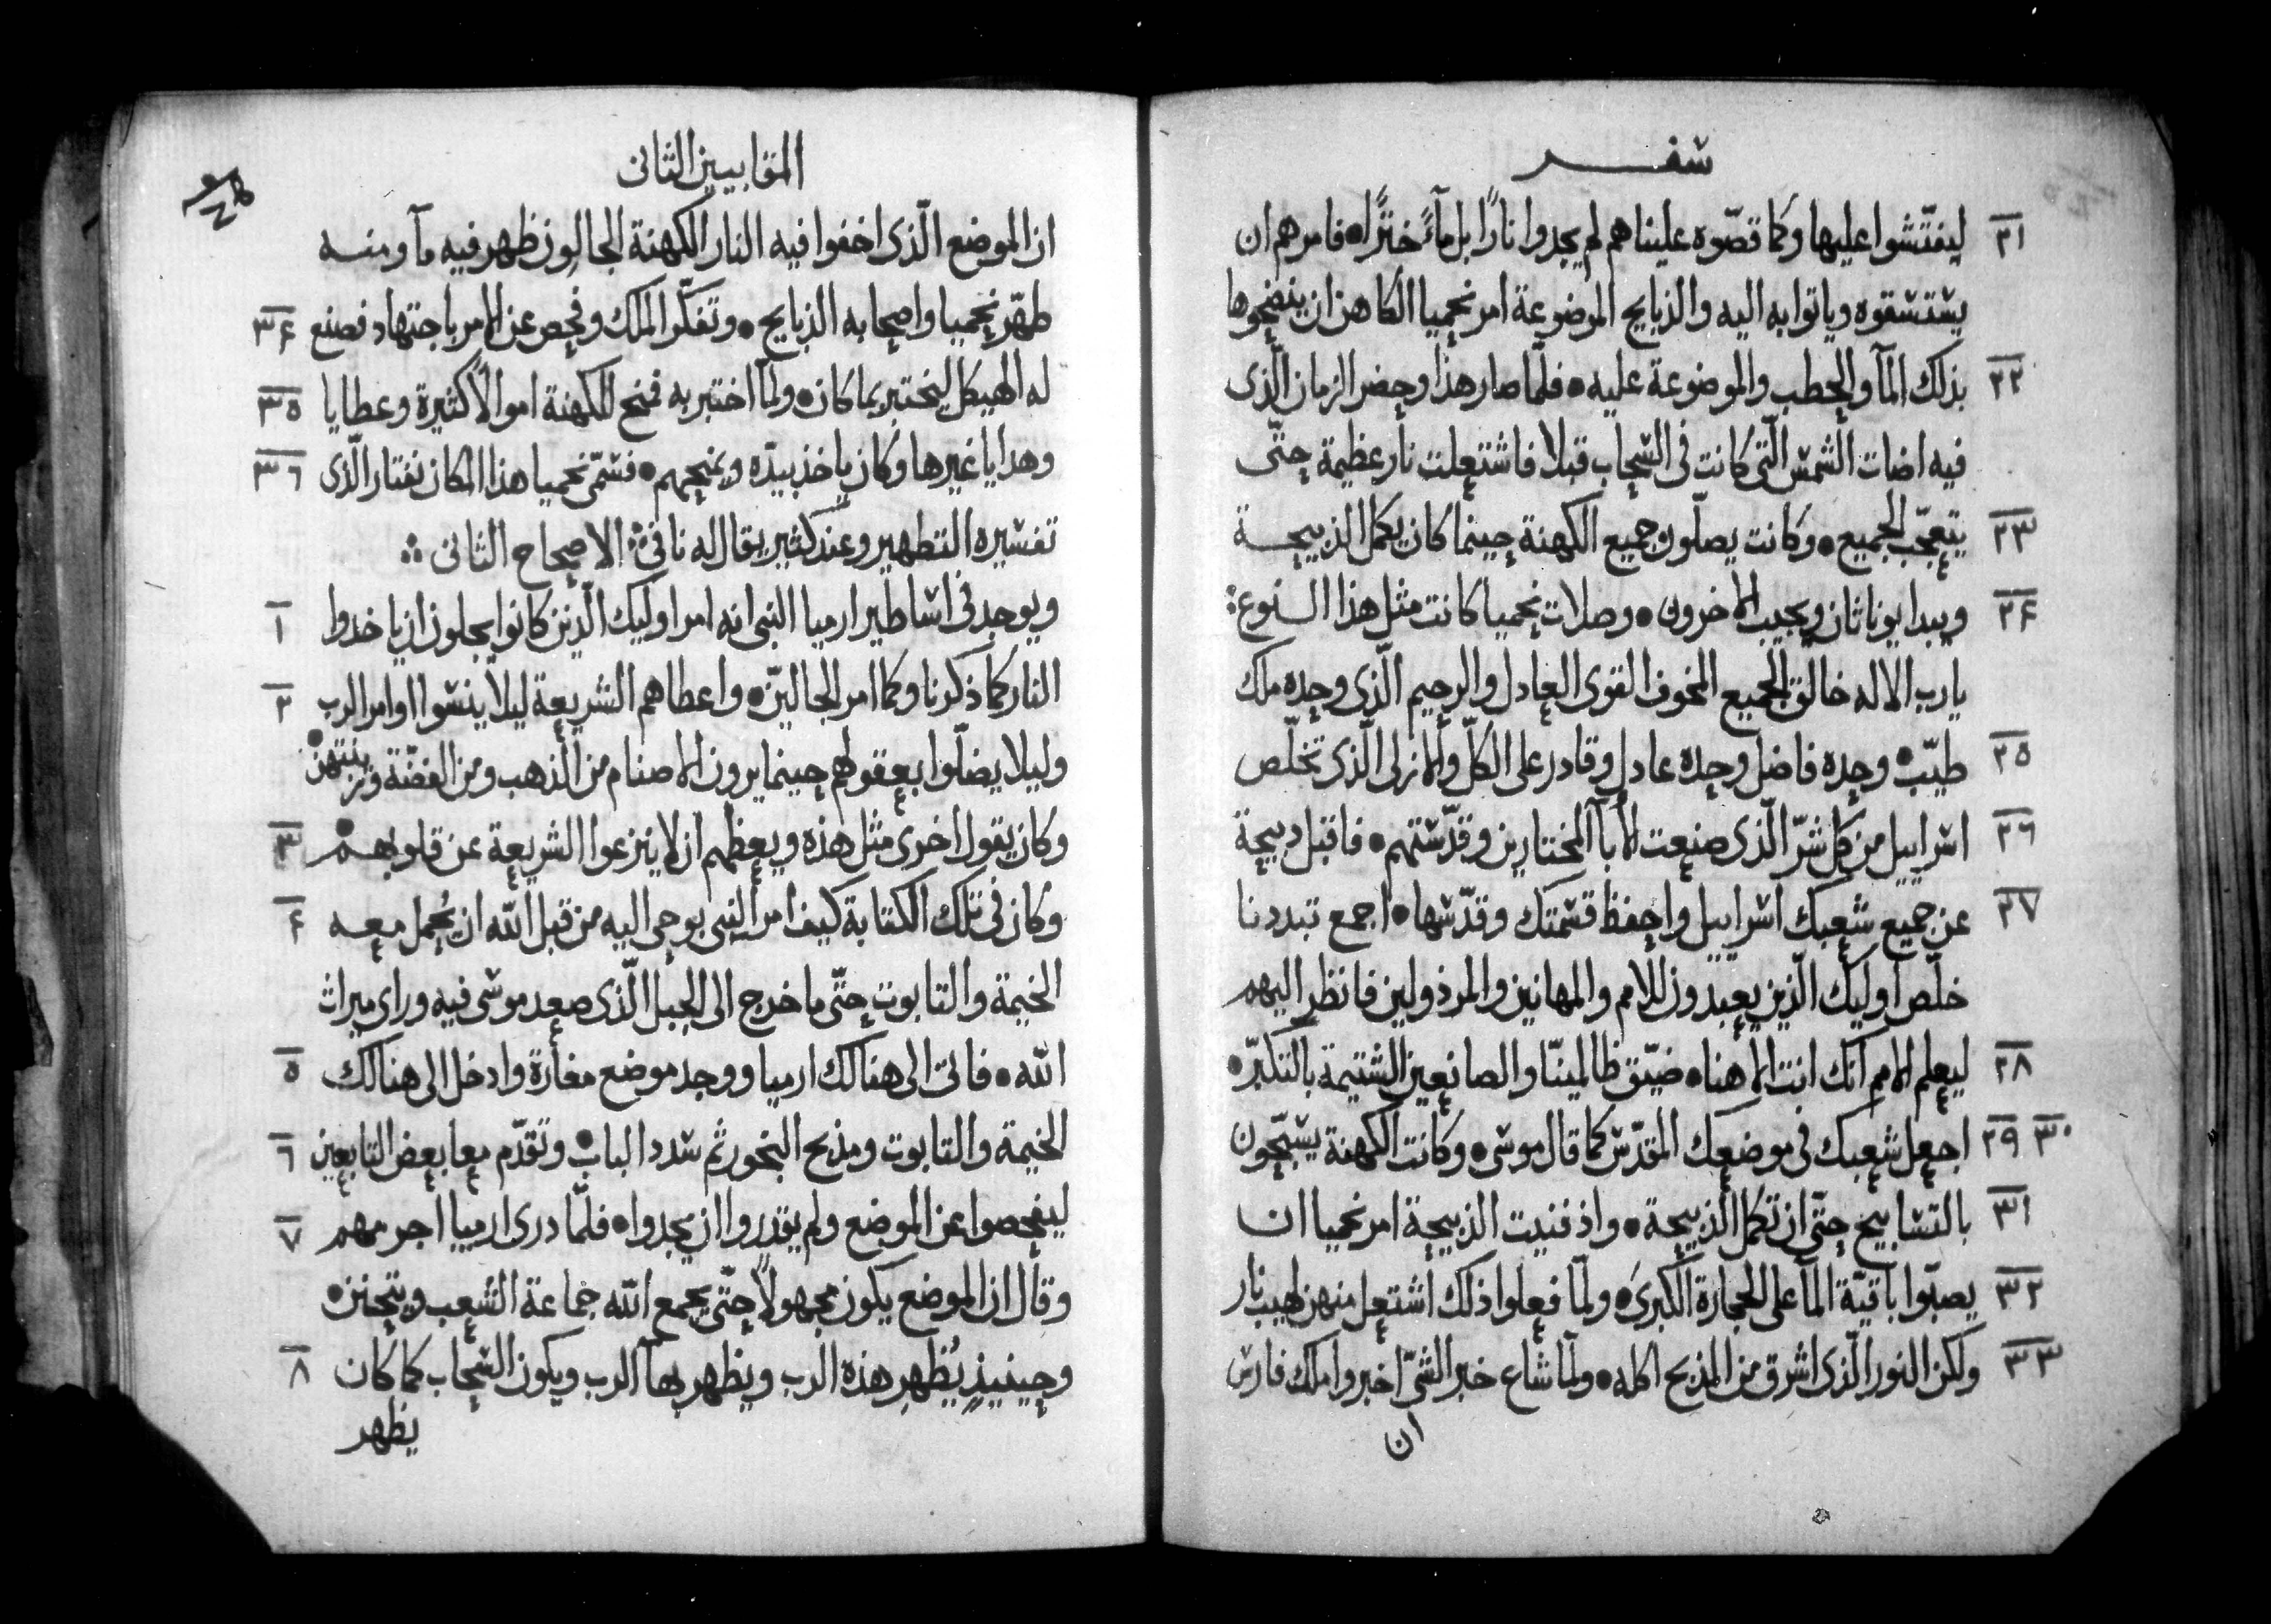 سفر
٢١ ليفتّشوا عليها وكما قصّوه علينا هم لم يجدوا نارًا بل مآءً خترًا • فامرهم ان
يستسقوه وياتوا به اليه والذبايح الموضوعة امر نحميا الكاهن ان ينضحوها
٢٢ بذلك المآ والحطب والموضوعة عليه • فلمّا صار هذا وحضر الزمان الّذى
فيه اضات الشمس الّتى كانت فى السحاب قبلا فاشتعلت نار عظيمة حتّى
٢٣ يتعجّب الجميع • وكانت يصلّون جميع الكهنة حينما كان يكمل الذبيحة
٢٤ ويبدا يوناثان ويجيب الاخرون • وصلات نحميا كانت مثل هذا النوع :
يا رب الاله خالق الجميع المخوف القوى العادل والرحيم الّذى وحده ملك
٢٥ طيّب • وحده فاضل وحده عادل وقادر على الكلّ والازلى الّذى تخلّص
٢٦ اسراييل من كل شرّ الّذى صنعت الابآ المختارين وقدّستهم • فاقبل دبيحة
٢٧ عن جميع شعبك اسراييل واحفظ قسمتك وقدّسها • اجمع تبددنا
خلّص اوليك الّذين يعبدون للامم والمهانين والمرذولين فانظر اليهم
٢٨ ليعلم الامم انّك انت الاهنا • ضيّق ظالمينّا والصانعين الشتيمة بالتكبّر •
٢٩ ٣٠ اجعل شعبك فى موضعك المقدّس كما قال موسى • وكانت الكهنة يسبّحون
٣١ بالتسابيح حتّى ان تكمل الذبيحة • واذ فنيت الذبيحة امر نحميا ان
٣٢ يصبّوا باقيّة المآ على الحجارة الكبرى • ولمّا فعلوا ذلك اشتعل منهن لهيب نار
٣٣ ولكن النور الّذى اشرق من المذبح اكله • ولمّا شاع خبر الشىّ اخبروا ملك فارس
ان
المقابيين الثانى
ان الموضع الّذى اخفوا فيه النار الكهنة الجالون ظهر فيه مآ ومنه
طهّر نحميا واصحابه الذبايح • وتفكّر الملك وفحص عن الامر باجتهاد فصنع ٣٤
له الهيكل ليختبر بما كان • ولمّا اختبر به فمنح للكهنة اموالًا كثيرة وعطايا ٣٥
وهدايا غيرها وكان ياخذ بيدّه ويمنحهم • فسمّى نحميا هذا المكان نفتار الّذى ٣٦
تفسيره التطهير وعند كثير يقال له نافى ∴ الاصحاح الثانى ∴
ويوجد فى اساطير ارميا النبى انه امر اوليك الّذين كانوا يجلون ان ياخدوا ١
النار كما ذكرنا وكما امر الجاليّن • واعطاهم الشريعة ليلا ينسوا اوامر الرب ٢
وليلا يضلّوا بعقولهم حينما يرون الاصنام من الذهب ومن الفضّة وزينتهن •
وكان يقول اخرى مثل هذه ويعظهم ان لا ينزعوا الشريعة عن قلوبهم • ٣
وكان فى تلك الكتابة كيف امر النبى بوحى اليه من قبل الله ان يُحمل معه ٤
الخيمة والتابوت حتّى ما خرج الى الجبل الّذى صعد موسى فيه وراى ميراث
الله • فاتى الى هنالك ارميا ووجد موضع مغارة وادخل الى هنالك ٥
الخيمة والتابوت ومذبح البخور ثم سدد الباب • وتقدّم معا بعض التابعين ٦
ليفحصوا عن الموضع ولم يقدروا ان يجدوا • فلمّا درى ارميا اجرمهم ٧
وقال ان الموضع يكون مجهولًا حتّى يجمع الله جماعة الشعب ويتحنن •
وحينيذٍ يُظهِر هذه الرب ويظهر بهآ الرب ويكون السحاب كما كان ٨
يظهر